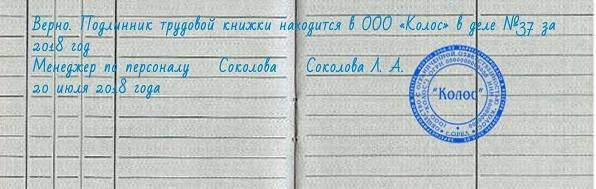 Верно. Подлинник трудовой книжки находится в ООО «Колос» в деле №37 за
2018 год
Менеджер по персоналу Соколова Соколова Л. А.
20 июля 2018 года
"Колос"